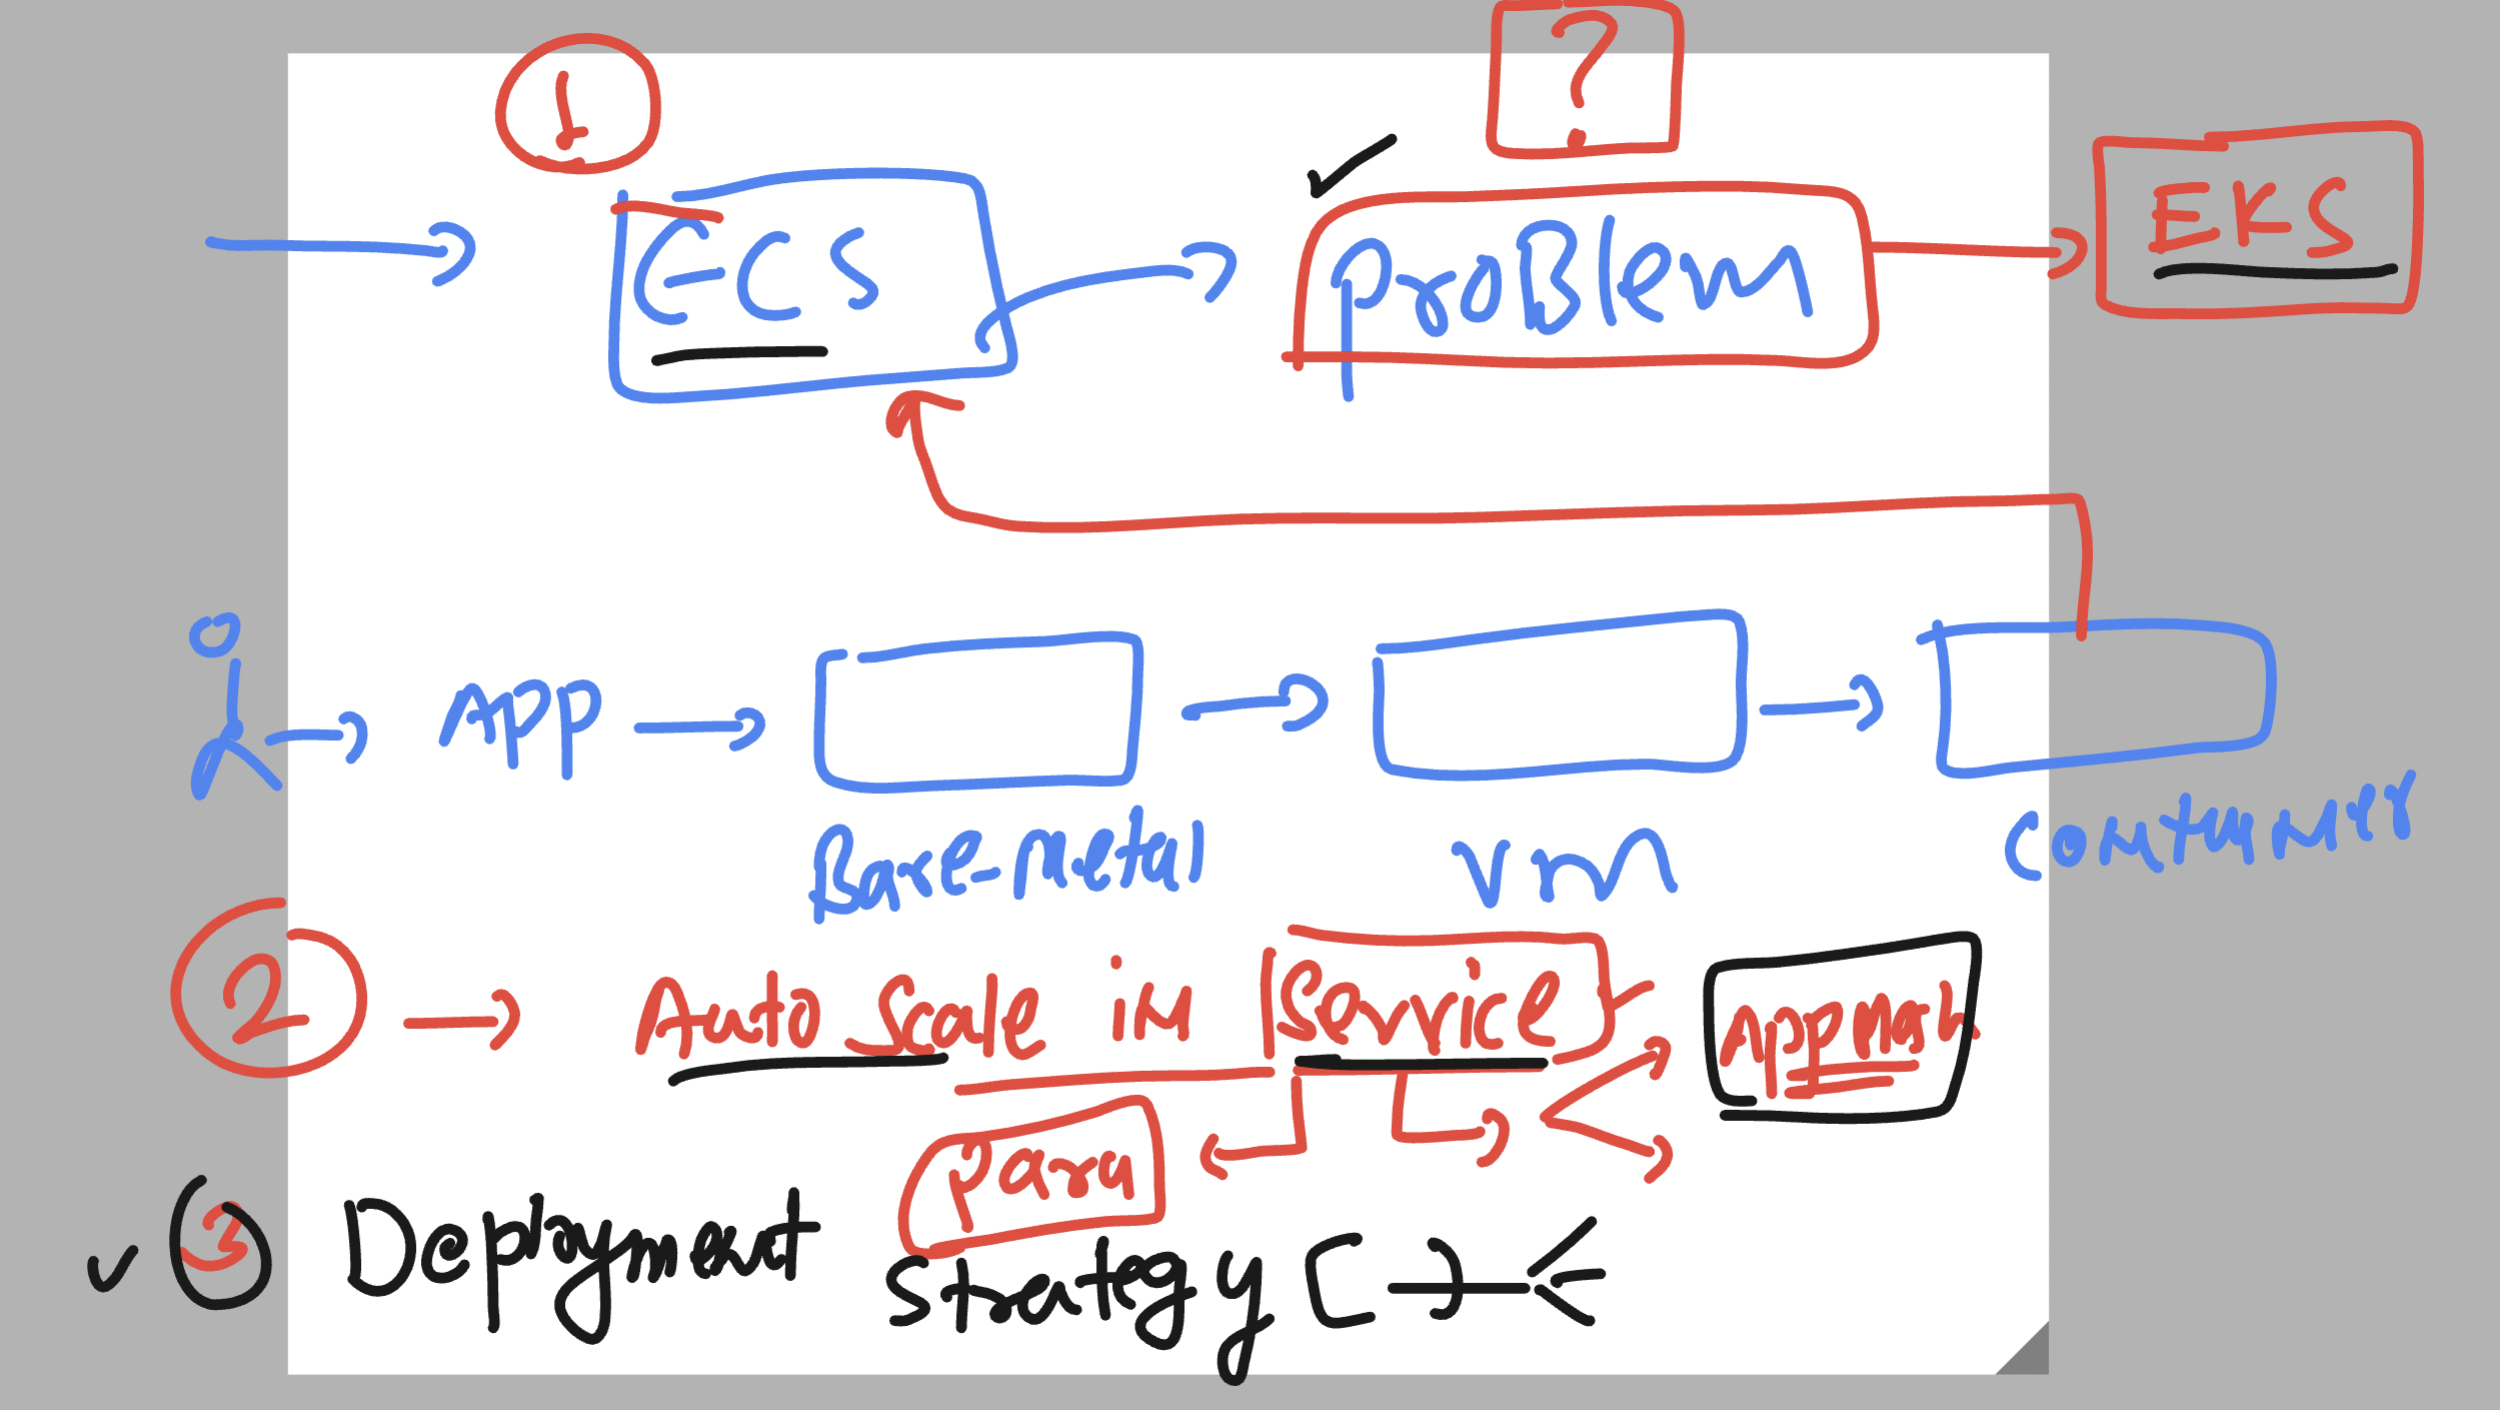 1
?
ECS
ProBlem
EKS
APP
Bare-Metal
VM
Container
2
Auto Scale in Service
App Mesh
Para
3 Deployment Strategy